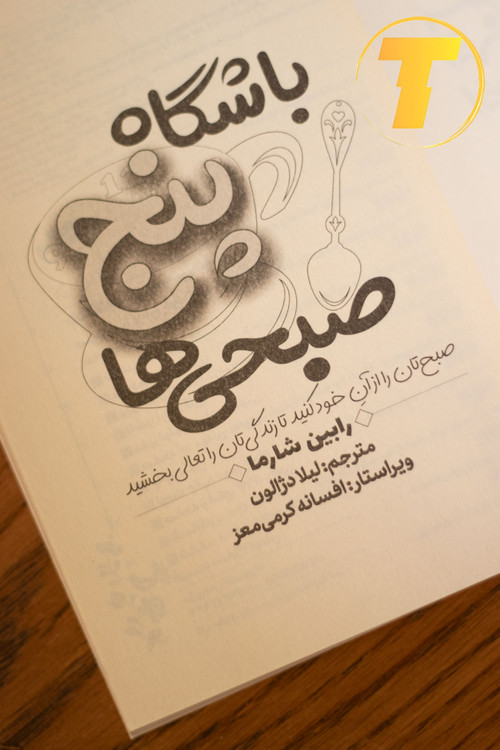 T
باشگاه
پنج
صبحی‌ها
صبح‌تان را از آنِ خود کنید تا زندگی‌تان را تعالی بخشید
رابین شارما
مترجم: لیلا دژالون
ویراستار: افسانه کرمی‌معز